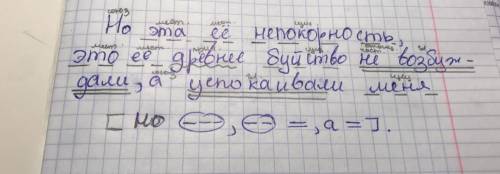 союз мест. мест. сущ.
Но эта её непокорность,
мест. мест. прил. сущ.
это её древнее буйство не возбуж-
дали, а успокаивали меня
[ но , =, а = ].